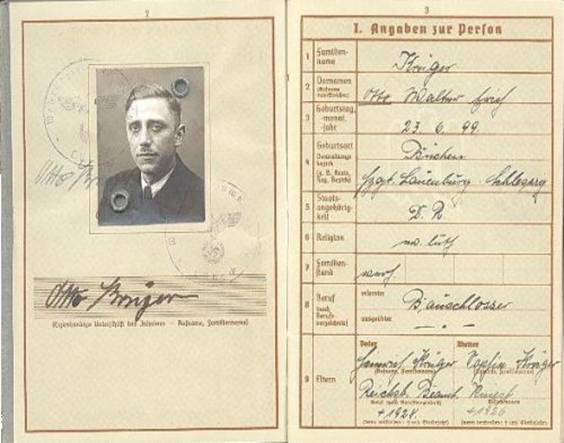 2
Otto Krüger
(Eigenhändige Unterschrift des Inhabers — Rufname, Familienname)
3
I. Angaben zur Person
1 Familien-
name
Krüger
2 Vornamen
(Rufname
unterstreichen)
Otto Walter Erich
3 Geburtstag,
-monat,
-jahr
23. 6. 99.
4 Geburtsort
Verwaltungs-
bezirk
(z. B. Kreis,
Reg.-Bezirk)
Büchen
Lauenburg
5 Staats-
angehörig-
keit
D. R.
6 Religion
ev. luth
7 Familien-
stand
verh.
8 Beruf
(nach
Berufs-
verzeichnis)
erlernter
Bauschlosser
ausgeübter
— . —
9 Eltern
Vater
Mutter
Heinrich Krüger
Sophie Krüger
(Rufname, Familienname)
Reichsb. Beamt.
+ 1928.
+ 1926